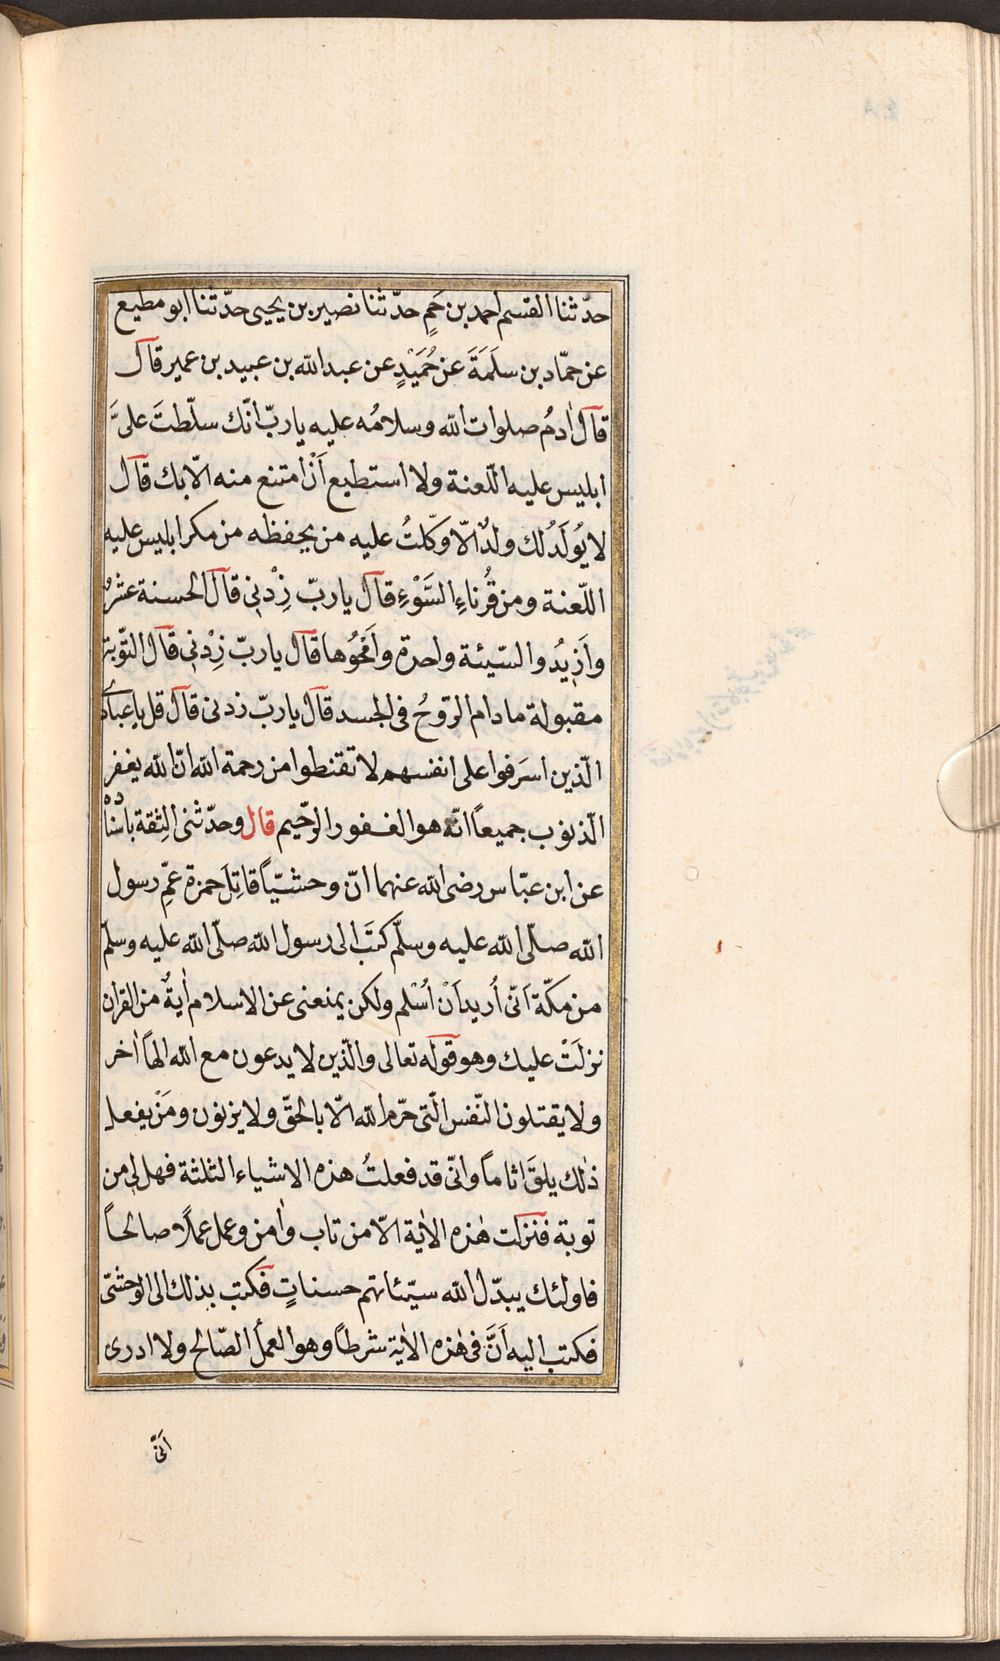 حدّثنا القسم احمد بن حَمٍ حدّثنا نصير بن يحيى حدّثنا ابو مطيع
عن حمّاد بن سلَمَةَ عن حُمَيْدٍ عن عبد الله بن عبيد بن عمير قال
قال اٰدمُ صلوات الله وسلامُه عليه يا ربّ انّك سلّطتَ علىَّ
ابليس عليه الّلعنة ولا استطيع اَنْ امتنع منه الّا بك قال
لا يُولَدُ لك ولدٌ الّا وكّلتُ عليه من يحفظه من مكر ابليس عليه
اللّعنة ومن قُرناءِ السَّوْءِ قال يا ربّ زِدْنى قال الحسنة عشرٌ
واَزِيدُ والسّيئة واحدة واَمْحُوها قال يا ربّ زِدْنى قال التّوبة
مقبولة ما دام الرّوحُ فى الجسد قال يا ربّ زدنى قال قل يا عبادى
الّذين اسَرفوا على انفسهم لا تقنطوا من رحمة الله انّ الله يغفر
الّذنوب جميعاً انّه هو الغفور الرّحيم قال وحدّثنى الثِقة باسْناده
عن ابن عبّاس رضى الله عنهما انّ وحشيّاً قاتِلَ حمزة عمِّ رسول
الله صلّى الله عليه وسلّم كتَب الى رسول الله صلّى الله عليه وسلّم
من مكّة اَنّى اُريد اَنْ اُسْلم ولكن يمنعنى عن الاسلام اٰيةٌ من القران
نزلَتْ عليك وهو قوله تعالى والّذين لا يدعون مع الله الهاً اٰخر
ولا يقتلون النّفس الّتى حرّم الله الّا بالحقّ ولا يزنون ومَنْ يفعل
ذٰلك يلقَ اثاماً وانّى قد فعلتُ هذه الاشياء الثلثة فهل لى من
توبة فنزلت هٰذه الاٰية الّا من تاب واٰمن وعمل عملًا صالحاً
فاولئك يبدّل الله سيّئاتهم حسناتٍ فكتب بذلك الى الوحشىّ
فكتب اليه اَنَّ فى هٰذه الاٰية شرطاً وهو العمل الصّالح ولا ادرى
اَنّى